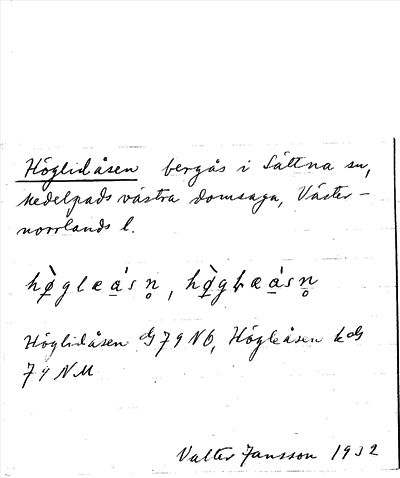 Höglidåsen bergås i Sättna sn,
Medelpads västra domsaga, Väster-
norrlands l.
Höglidåsen GS 79 NO, Högleåsen kGS
79 NM
Valter Jansson 1932